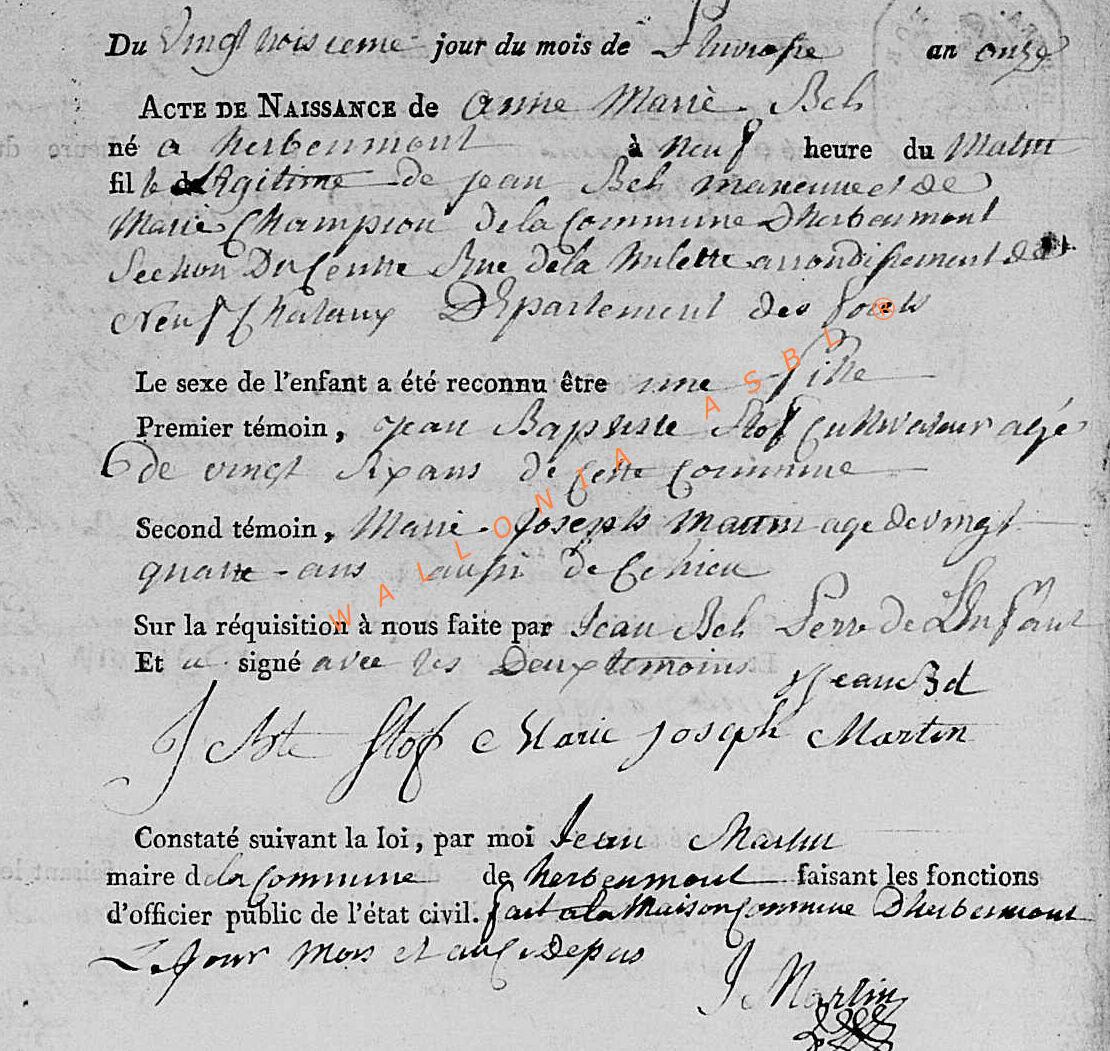 Du Vingt troisieme jour du mois de Pluviose an onze
ACTE DE NAISSANCE de anne Marie Bch
né a herbeumont à neuf heure du Matin
fil le de Legitime de jean Bch maneuvre et de
Marie Champion de la Commune Dherbeumont
Section Du Centre Rue dela arrondissement de
Neuf Chateaux Departement des forets
Le sexe de l'enfant a été reconnu être une fille
Premier témoin, jean Baptiste Stof Cultivateur agé
de vingt six ans de Cette Commune
Second témoin, Marie Joseph Martin age de vingt
quatre ans aussi de Ce lieu
Sur la réquisition à nous faite par Jean Bch Perre de L'Enfant
Et a signé avec les Deux temoins
Jean Bch
J Bte Stof Marie joseph Martin
Constaté suivant la loi, par moi Jean Martin
maire d ela Commune de herbeumont faisant les fonctions
d'officier public de l'état civil. fait ala Maison Commune Dherbeumont
Le jour Mois et an
J Martin
WALLONIA ASBL ®